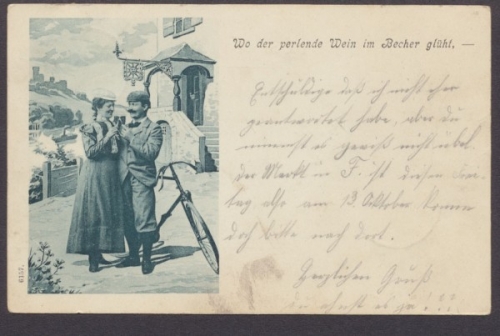 Wo der perlende Wein im Becher glüht, —
Entschuldige daß ich nicht eher
geantwortet habe, aber du
nimmst es gewiß nicht übel
der Markt in F. ist diesen Dins-
tag also am 13 Oktober komm
doch bitte nach dort.
Herzlichen Gruß
du ahnst es ja!??
6157.